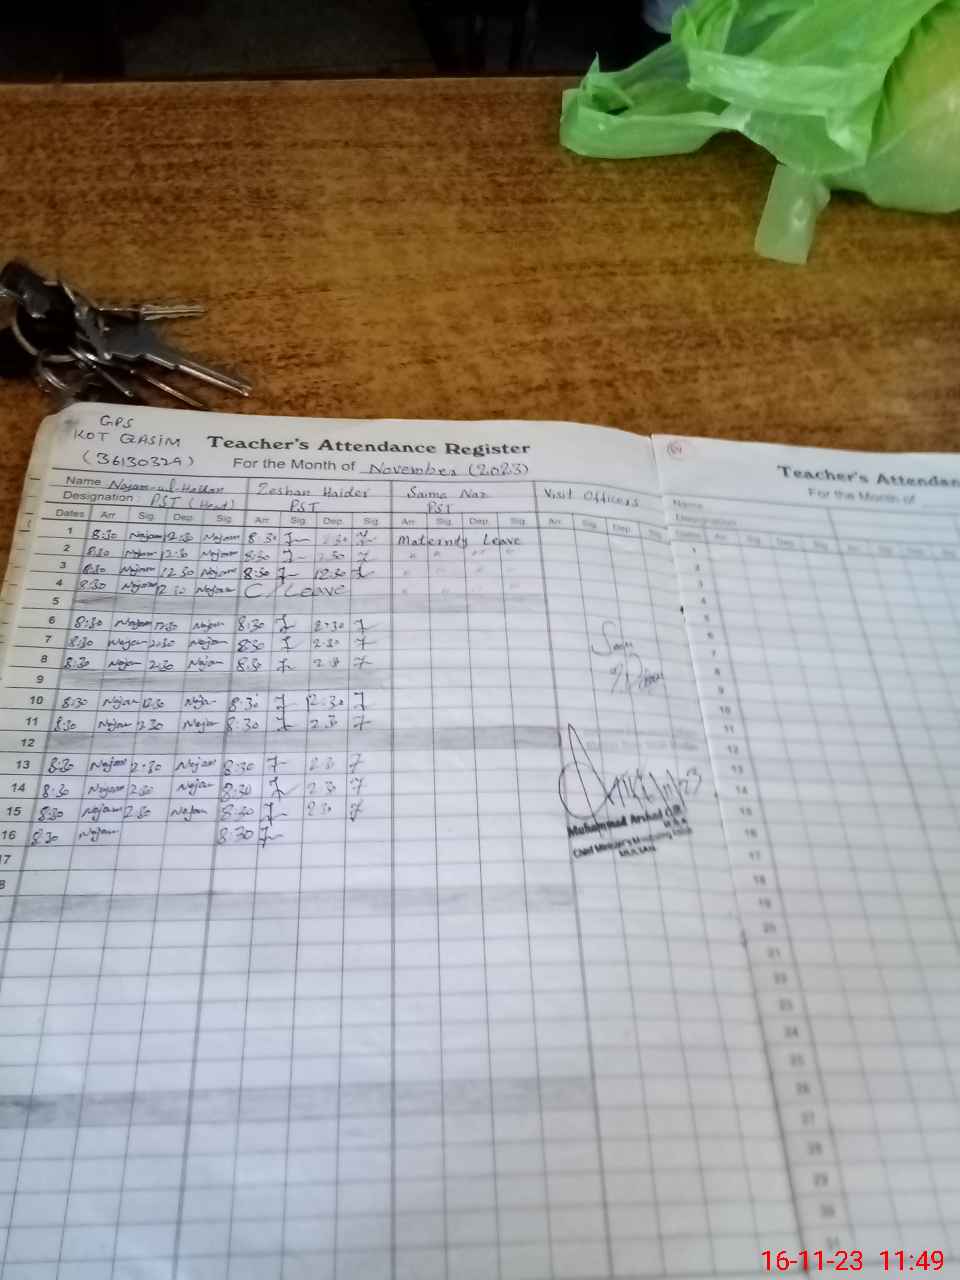 GPS
KOT QASIM
(36130329)
Teacher's Attendance Register
For the Month of November (2023)
Name Najam-ul-Hassan Zeshan Haider Saima Naz Visit Officers
Designation: PST (Head) PST PST
Dates Arr. Sig. Dep. Sig. Arr. Sig. Dep. Sig. Arr. Sig. Dep. Sig. Arr. Sig. Dep. Sig.
1 8:30 Najam 12:30 Najam 8:30 2:30 Maternity Leave
2 8:30 Najam 12:30 Najam 8:30 2:30 " " " "
3 8:30 Najam 12:30 Najam 8:30 12:30 " " " "
4 8:30 Najam 12:30 Najam C/Leave " " " "
5
6 8:30 Najam 12:30 Najam 8:30 2:30
7 8:30 Najam 2:30 Najam 8:30 2:30
8 8:30 Najam 2:30 Najam 8:30 2:30
9
10 8:30 Najam 12:30 Najam 8:30 12:30
11 8:30 Najam 2:30 Najam 8:30 2:30
12
13 8:30 Najam 2:30 Najam 8:30 2:30
14 8:30 Najam 2:30 Najam 8:30 2:30
15 8:30 Najam 2:30 Najam 8:30 2:30
16 8:30 Najam 8:30
17
8
Muhammad Arshad
Chief Minister's Monitoring Force
MULTAN
Teacher's Attendan
For the Month of
Name
Designation
Dates Arr. Sig. Dep. Sig.
1
2
3
4
5
6
7
8
9
10
11
12
13
14
15
16
17
18
19
20
21
22
23
24
25
26
27
28
29
30
31
16-11-23 11:49